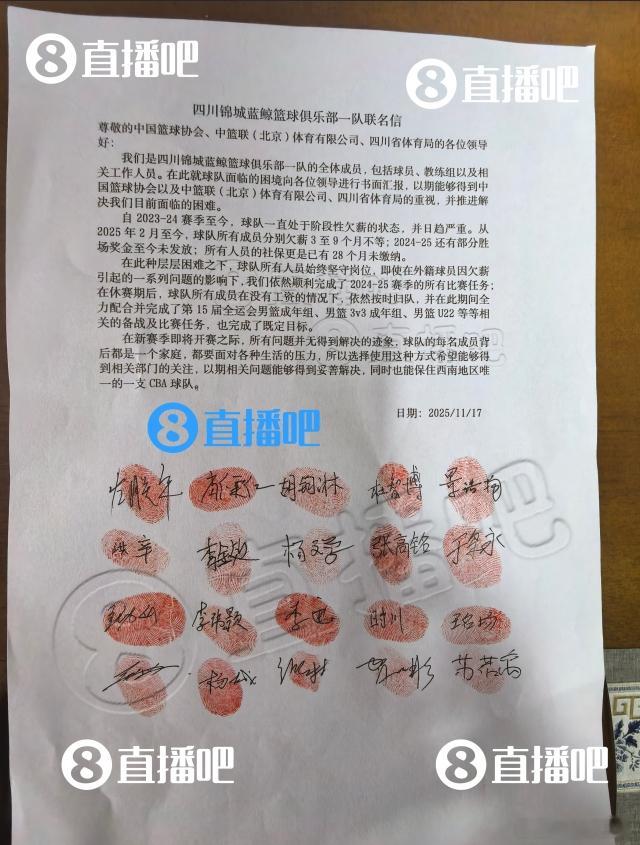 8直播吧
8直播吧
四川锦城蓝鲸篮球俱乐部一队联名信
尊敬的中国篮球协会、中篮联（北京）体育有限公司、四川省体育局的各位领导
好：
我们是四川锦城蓝鲸篮球俱乐部一队的全体成员，包括球员、教练组以及相
关工作人员。在此就球队面临的困境向各位领导进行书面汇报，以期能够得到中
国篮球协会以及中篮联（北京）体育有限公司、四川省体育局的重视，并推进解
决我们目前面临的困难。
自 2023-24 赛季至今，球队一直处于阶段性欠薪的状态，并日趋严重。从
2025 年 2 月至今，球队所有成员分别欠薪 3 至 9 个月不等；2024-25 还有部分胜
场奖金至今未发放；所有人员的社保更是已有 28 个月未缴纳。
在此种层层困难之下，球队所有人员始终坚守岗位，即使在外籍球员因欠薪
引起的一系列问题的影响下，我们依然顺利完成了 2024-25 赛季的所有比赛任务；
在休赛期后，球队所有成员在没有工资的情况下，依然按时归队，并在此期间全
力配合并完成了第 15 届全运会男篮成年组、男篮 3v3 成年组、男篮 U22 等等相
关的备战及比赛任务，也完成了既定目标。
在新赛季即将开赛之际，所有问题并无得到解决的迹象，球队的每名成员背
后都是一个家庭，都要面对各种生活的压力，所以选择使用这种方式希望能够得
到相关部门的关注，以期相关问题能够得到妥善解决，同时也能保住西南地区唯
一的一支 CBA 球队。
日期：2025/11/17
8直播吧
杜智博 景浩扬
张高铭
李张颢
李迅 时川
8直播吧
8直播吧
8直播吧